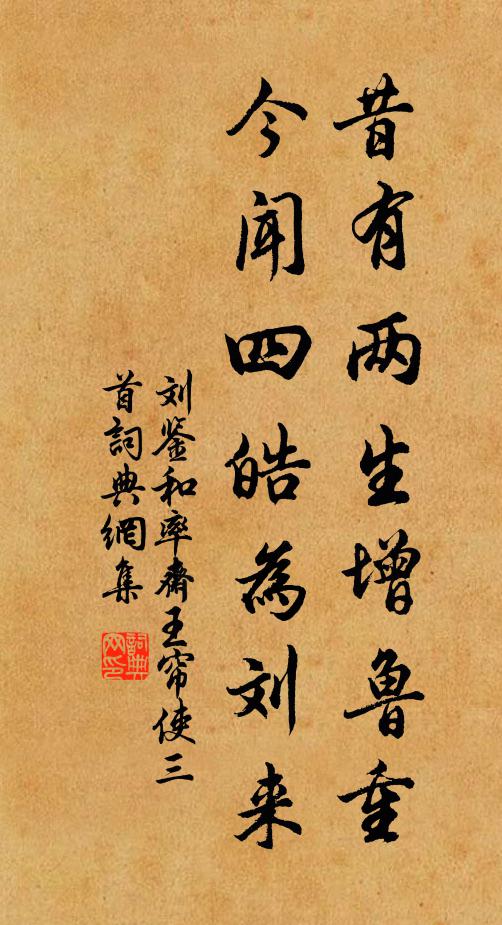 昔有两生增鲁重
今闻四皓為刘来
刘鉴和率斋王帘使三
首詞典網集
詞典网印